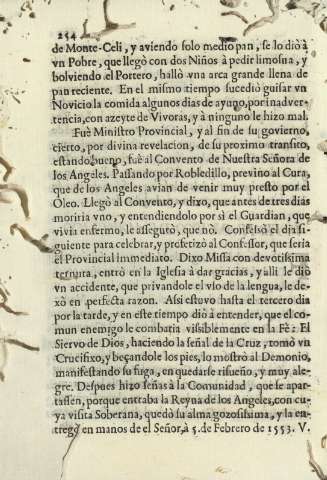 254
de Monte-Celi, y aviendo solo medio pan, se lo diò à
vn Pobre, que llegò con dos Niños à pedir limosna, y
bolviendo el Portero, hallò vna arca grande llena de
pan reciente. En el mismo tiempo sucediò guisar vn
Novicio la comida algunos dias de ayuno, por inadver-
tencia, con azeyte de Vivoras, y à ninguno le hizo mal.
Fuè Ministro Provincial, y al fin de su govierno,
cierto, por divina revelacion, de su proximo transito,
estando bueno, fuè al Convento de Nuestra Señora de
los Angeles. Passando por Robledillo, previno al Cura,
que de los Angeles avian de venir muy presto por el
Oleo. Llegò al Convento, y dixo, que antes de tres dias
moriria vno, y entendiendolo por sì el Guardian, que
vivia enfermo, le assegurò, que nò. Confessò el dia si-
guiente para celebrar, y profetizò al Confessor, que seria
el Provincial immediato. Dixo Missa con devotissima
ternura, entrò en la Iglesia à dar gracias, y alli le diò
vn accidente, que privandole el vso de la lengua, le de-
xò en perfecta razon. Assi estuvo hasta el tercero dia
por la tarde, y en este tiempo diò à entender, que el co-
mun enemigo le combatia vissiblemente en la Fè: El
Siervo de Dios, haciendo la señal de la Cruz, tomò vn
Crucifixo, y beçandole los pies, lo mostrò al Demonio,
manifestando su fuga, en quedarse risueño, y muy ale-
gre. Despues hizo señas à la Comunidad, que se apar-
tassen, porque entraba la Reyna de los Angeles, con cu-
ya visita Soberana, quedò su alma gozosissima, y la en-
tregò en manos de el Señor, à 5. de Febrero de 1553. V.